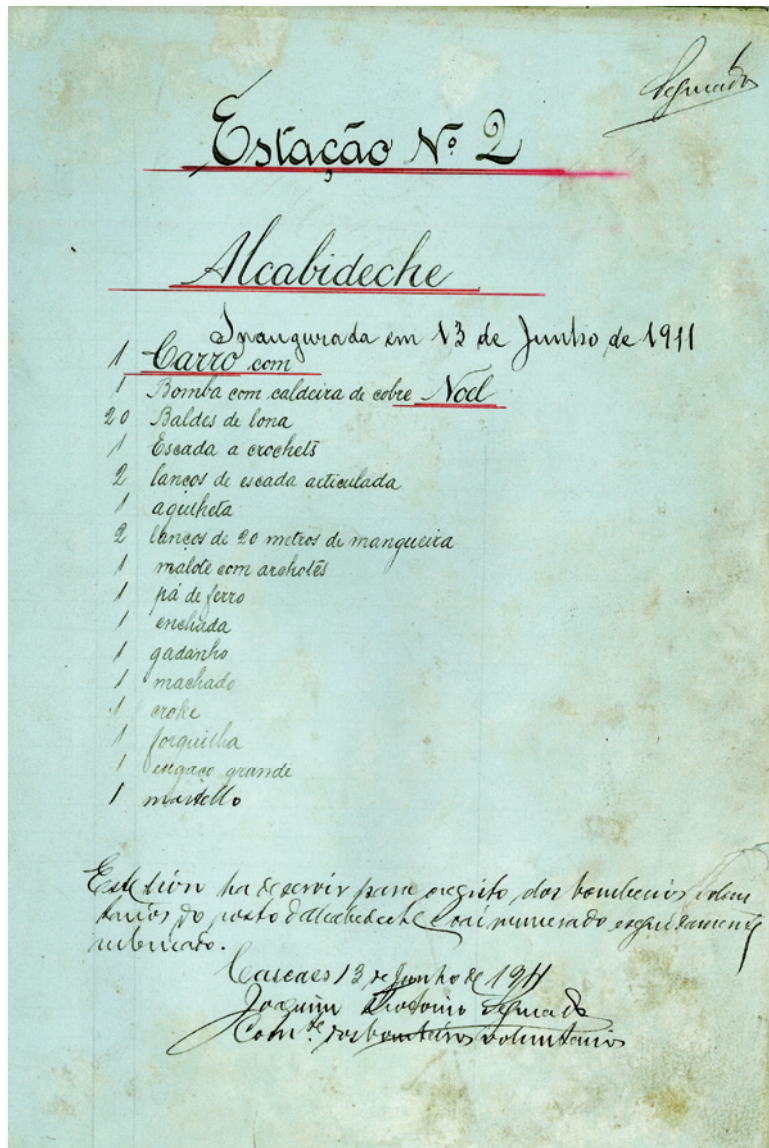 Segurado
Estação Nº 2
Alcabideche
Inaugurada em 13 de Junho de 1911
1 Carro com
1 Bomba com caldeira de cobre Noel
20 Baldes de lona
1 Escada a crochets
2 lanços de escada articulada
1 agulheta
2 lanços de 20 metros de mangueira
1 malote com archotes
1 pá de ferro
1 enchada
1 gadanho
1 machado
1 croke
1 forquilha
1 engaço grande
1 martello
Este livro ha de servir para registo dos bombeiros volun
tarios do posto d'Alcabideche e vai numerado e
rubricado.
Cascaes 13 de Junho de 1911
Joaquim Theotonio Segurado
Com.te dos bombeiros voluntarios